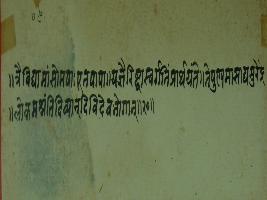 ॥त्रैविद्यामांसोमपाःपूतपापा॥यज्ञैरिष्ट्वास्वर्गतिंप्रार्थयंते॥तेपुण्यमासाद्यसुरेंद्र
॥लोकमश्नंतिदिव्यान्दिविदेवभोगान्॥२०॥